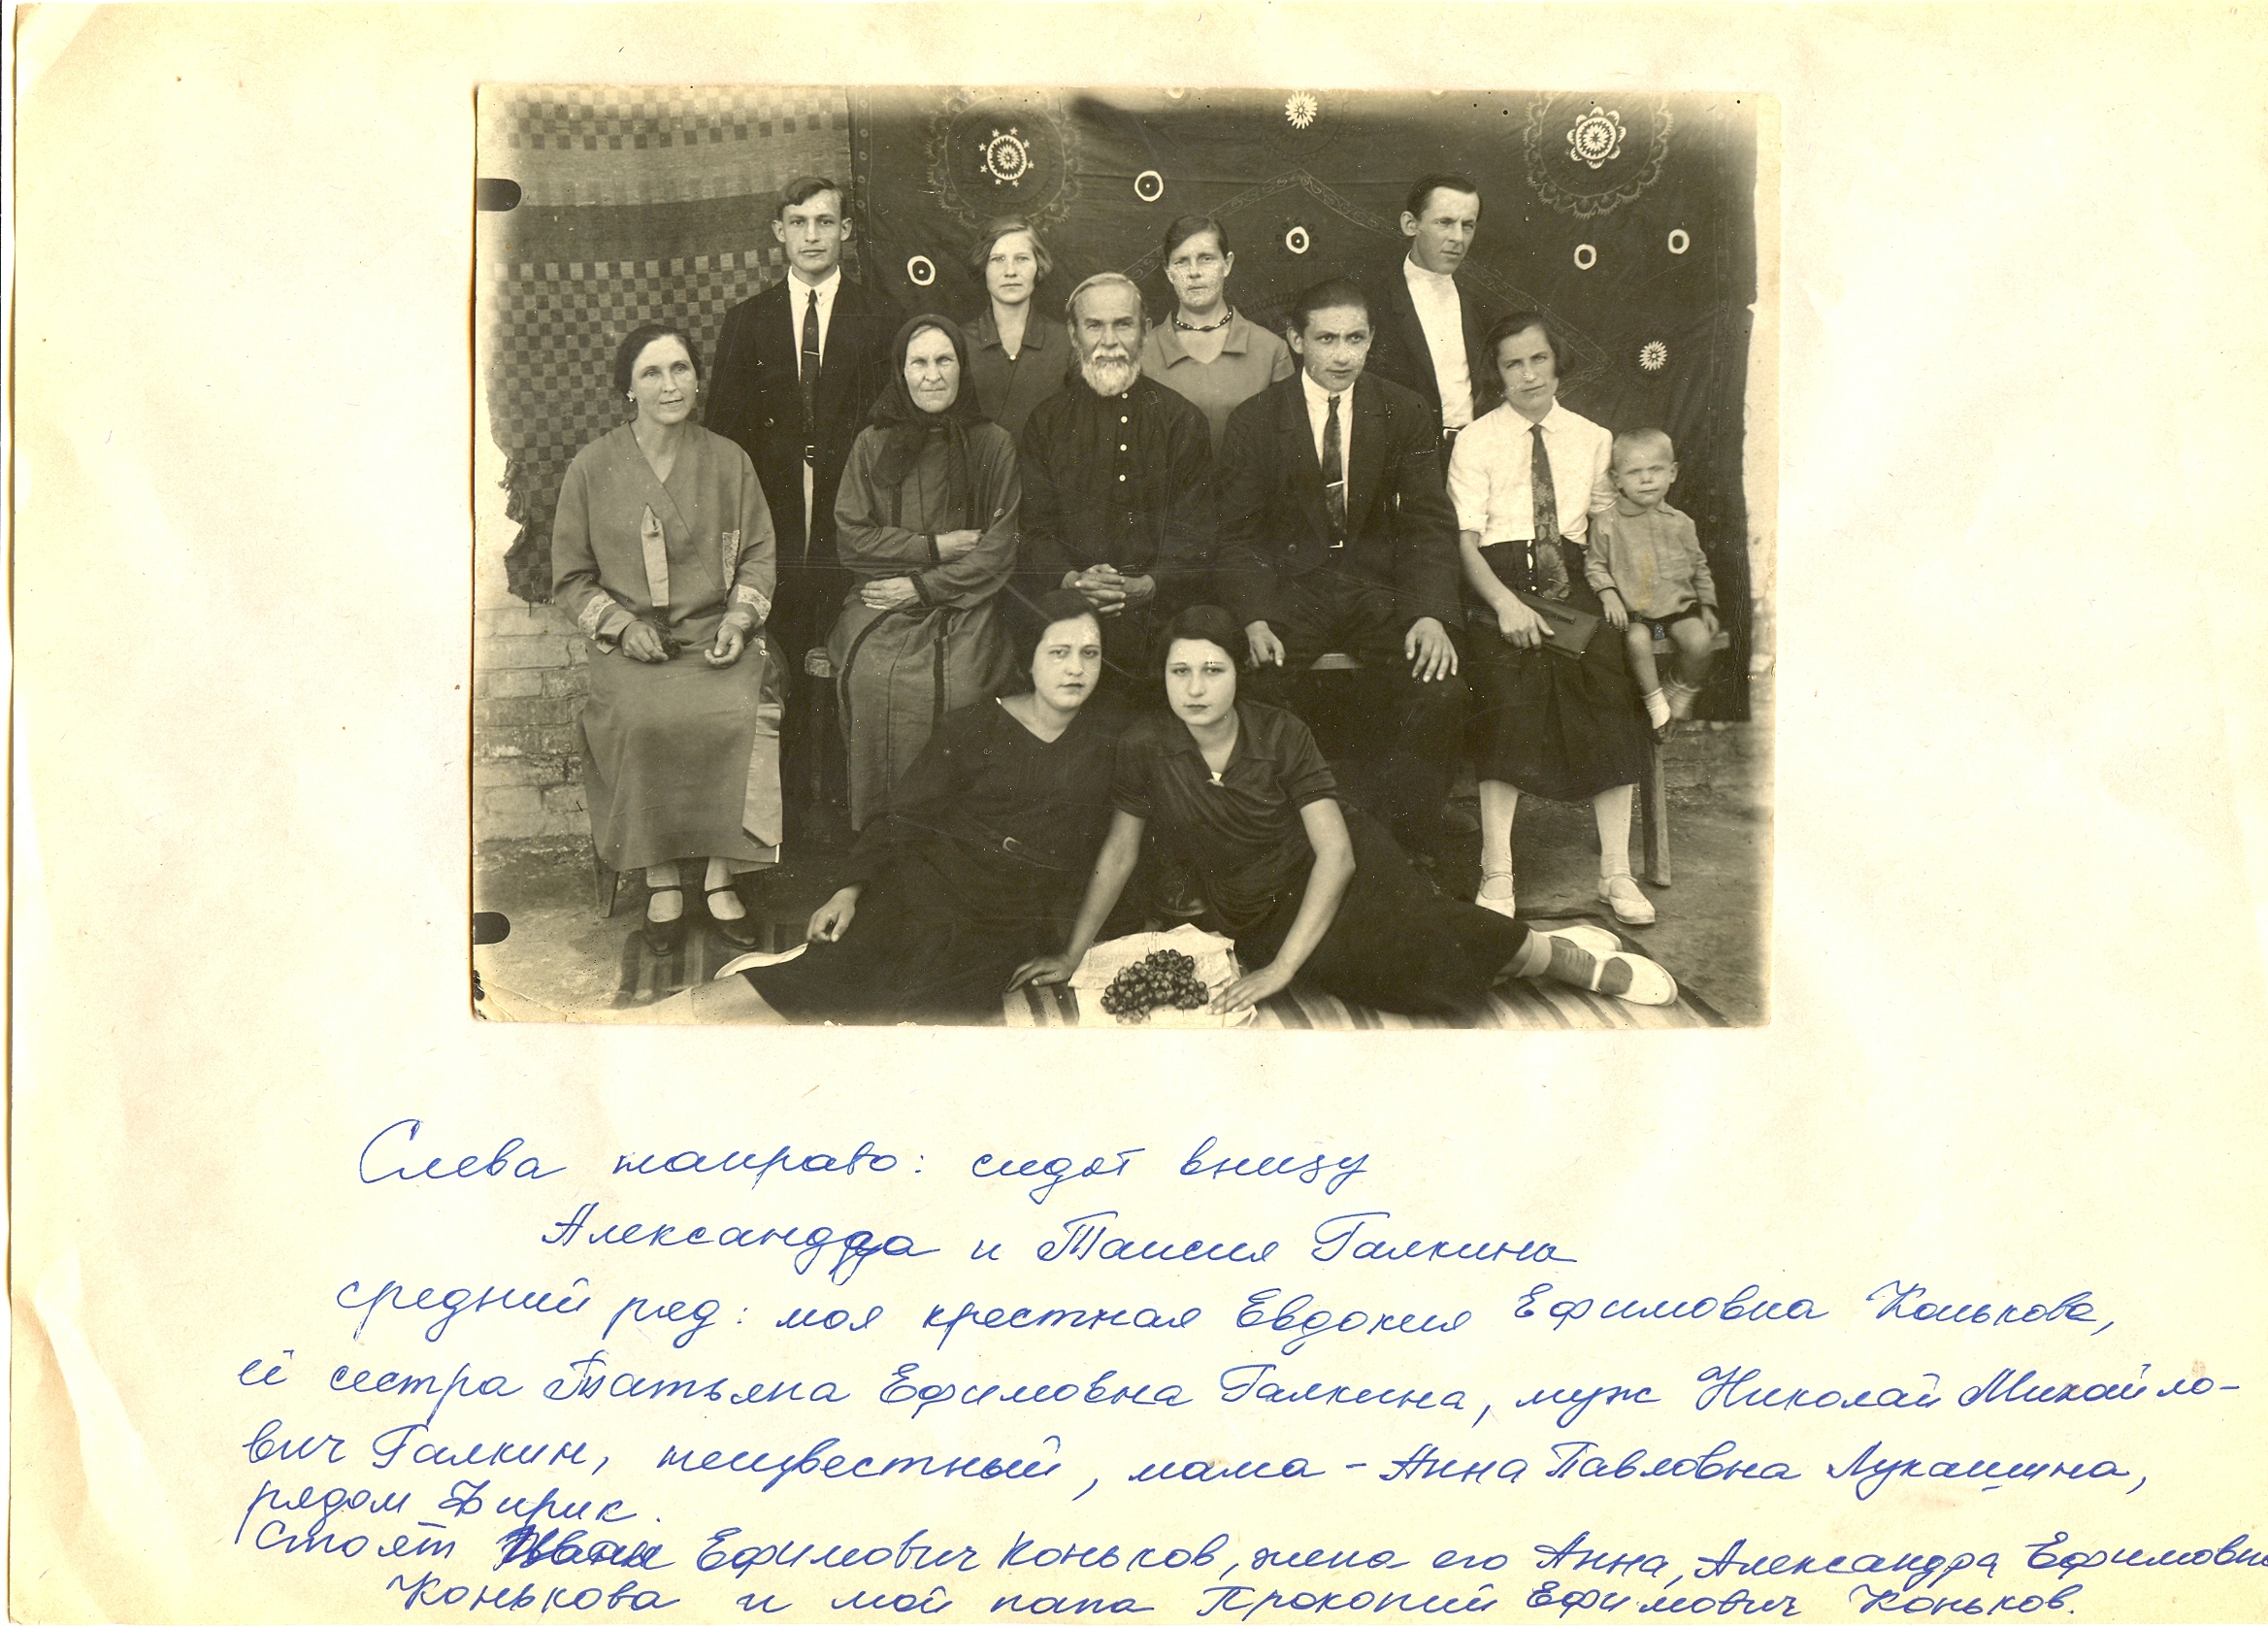 Слева направо: сидят внизу
Александра и Таисия Галкины
средний ряд: моя крестная Евдокия Ефимовна Конькова,
её сестра Татьяна Ефимовна Галкина, муж Николай Михайло-
вич Галкин, неизвестный, мама - Анна Павловна Лукашина,
рядом Фирик.
Стоят Иван Ефимович Коньков, жена его Анна, Александра Ефимовна
Конькова и мой папа Прокопий Ефимович Коньков.